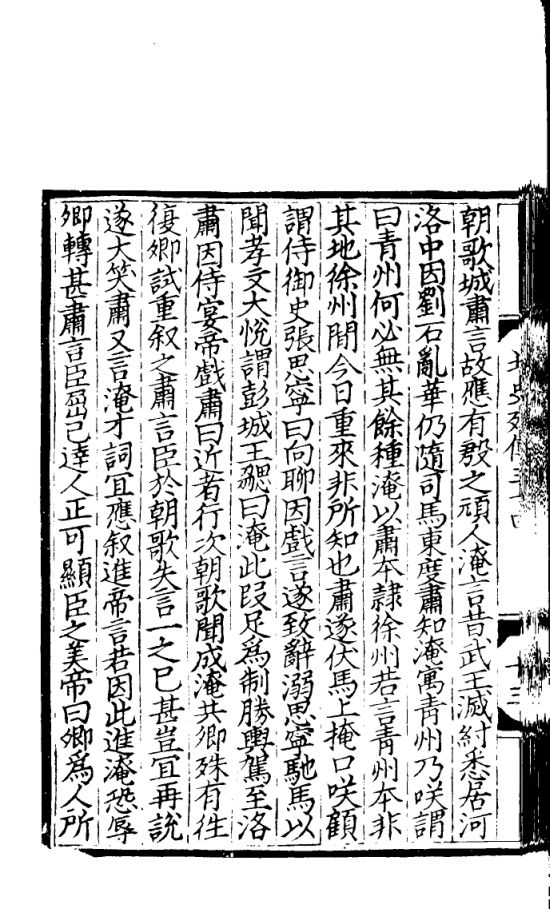 朝歌城肅言故應有殷之頑人淹言昔武王滅紂悉居河
洛中因劉石亂華仍隨司馬東度肅知淹寓青州乃咲謂
曰青州何必無其餘種淹以肅本隷徐州若言青州本非
其地徐州間今日重來非所知也肅遂伏馬上掩口咲顧
謂侍御史張思寧曰向聊因戲言遂致辭溺思寧馳馬以
聞孝文大悅謂彭城王勰曰淹此段足爲制勝輿駕至洛
肅因侍宴帝戲肅曰近者行次朝歌聞成淹共卿殊有徃
復卿試重叙之肅言臣於朝歌失言一之已甚豈宜再說
遂大笑肅又言淹才詞宜應叙進帝言若因此進淹恐辱
卿轉甚肅言臣屈己達人正可顯臣之美帝曰卿爲人所